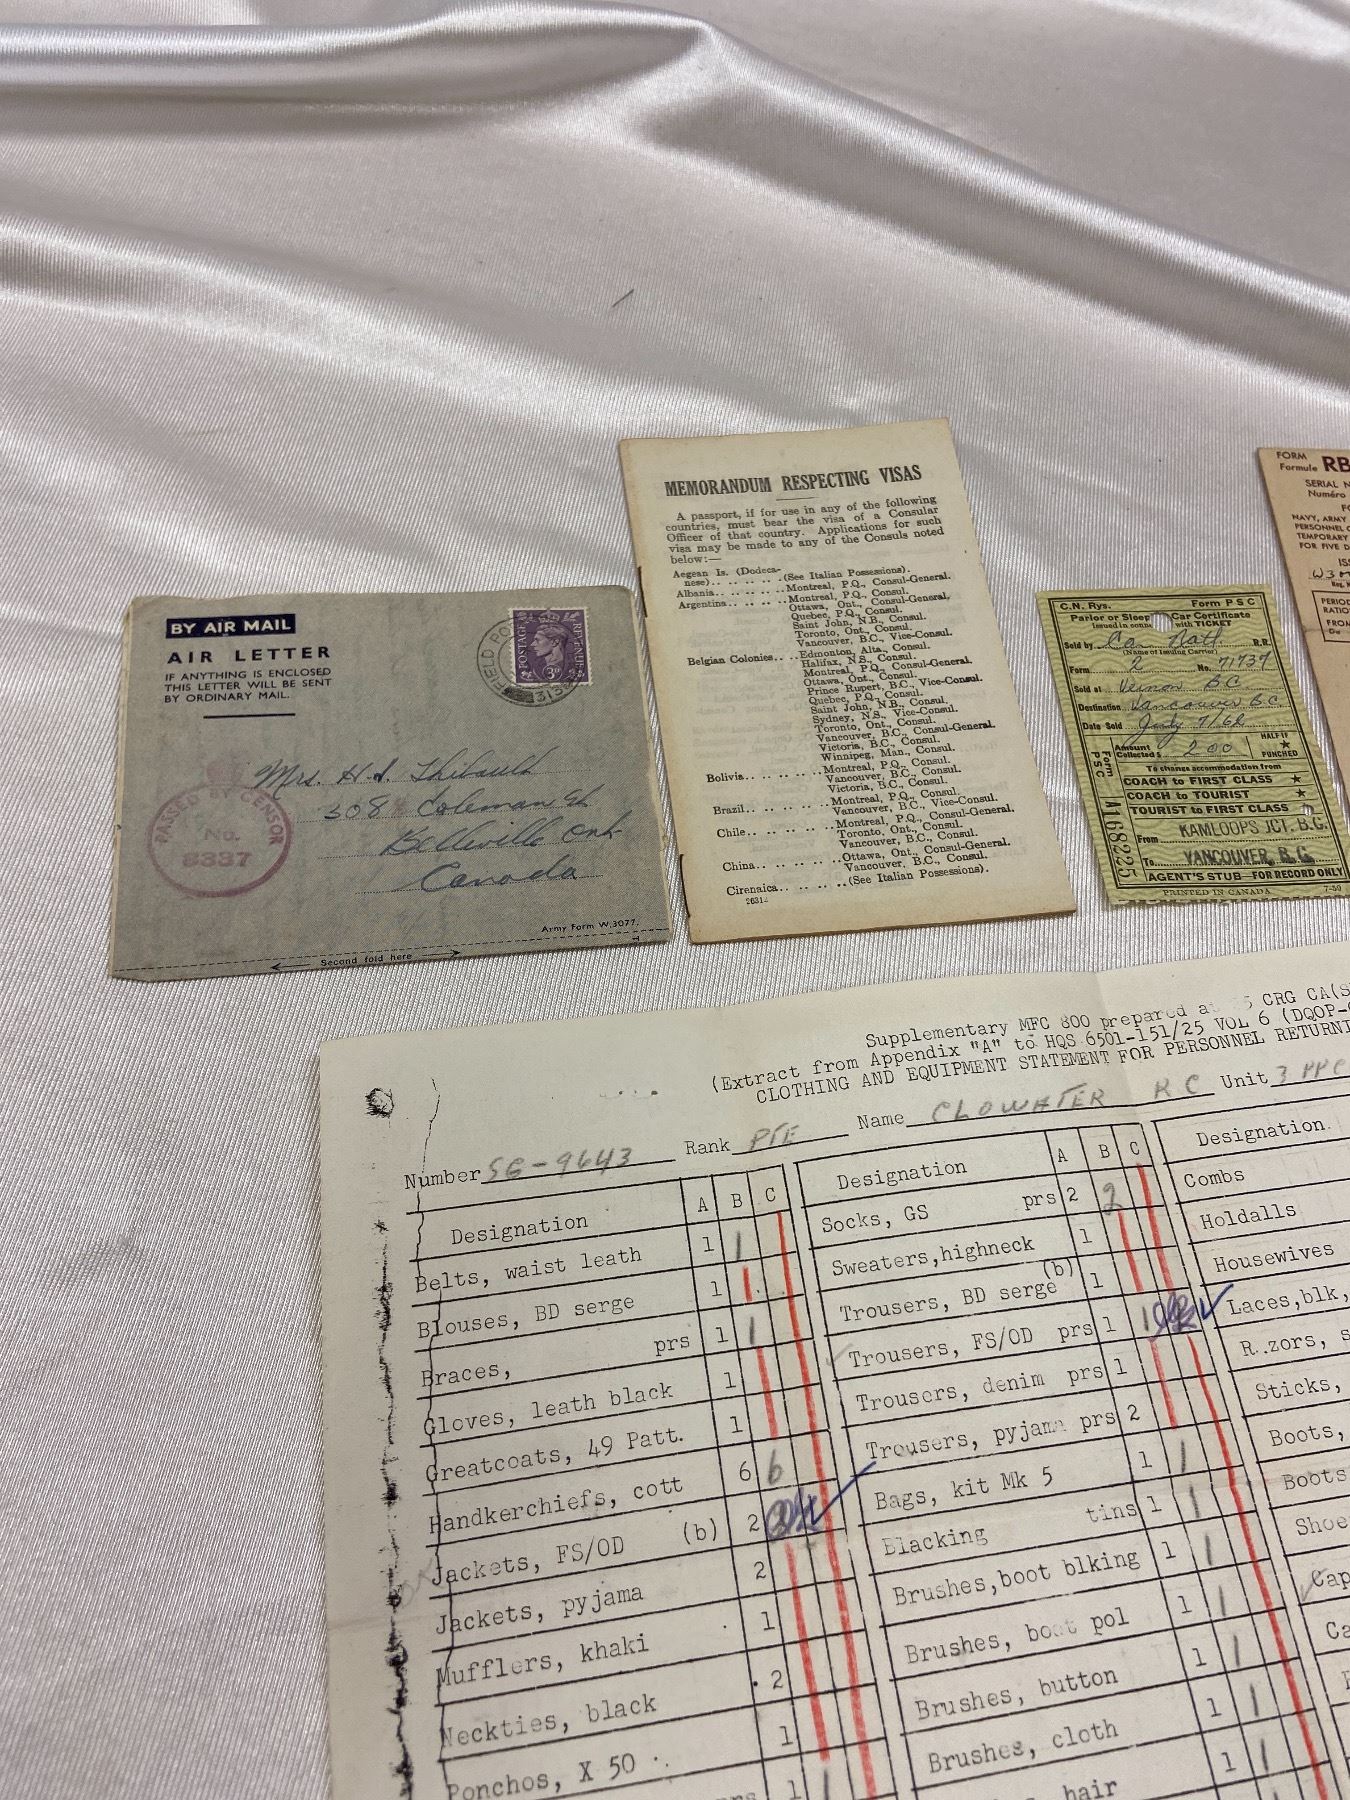 BY AIR MAIL
AIR LETTER
IF ANYTHING IS ENCLOSED
THIS LETTER WILL BE SENT
BY ORDINARY MAIL.
FIELD PO
313
POSTAGE
REVENUE
3D
Mrs. H.
308 Coleman St
Belleville Ont
Canada
PASSED CENSOR
No.
8337
Army Form W.3077.
Second fold here
MEMORANDUM RESPECTING VISAS
A passport, if for use in any of the following
countries, must bear the visa of a Consular
Officer of that country. Applications for such
visa may be made to any of the Consuls noted
below:—
Aegean Is. (Dodeca-
nese).. .. .. .. .. (See Italian Possessions).
Albania.. .. .. .. .. Montreal, P.Q., Consul-General.
Argentina.. .. .. .. Montreal, P.Q., Consul.
Ottawa, Ont., Consul-General,
Quebec, P.Q., Consul.
Saint John, N.B., Consul.
Toronto, Ont., Consul.
Vancouver, B.C., Vice-Consul.
Belgian Colonies.. .. Edmonton, Alta., Consul.
Halifax, N.S., Consul.
Montreal, P.Q., Consul-General.
Ottawa, Ont., Consul.
Prince Rupert, B.C., Vice-Consul.
Quebec, P.Q., Consul.
Saint John, N.B., Consul.
Sydney, N.S., Vice-Consul.
Toronto, Ont., Consul.
Vancouver, B.C., Consul-General.
Victoria, B.C., Consul.
Winnipeg, Man., Consul.
Bolivia.. .. .. .. .. Montreal, P.Q., Consul.
Vancouver, B.C., Consul.
Victoria, B.C., Consul.
Brazil.. .. .. .. .. Montreal, P.Q., Consul.
Vancouver, B.C., Vice-Consul.
Chile.. .. .. .. .. Montreal, P.Q., Consul-General.
Toronto, Ont., Consul.
Vancouver, B.C., Consul.
China.. .. .. .. .. Ottawa, Ont., Consul-General.
Vancouver, B.C., Consul.
Cirenaica.. .. .. .. (See Italian Possessions).
C.N. Rys. Form P S C
Parlor or Sleep Car Certificate
Issued in conne with TICKET
Sold by Can Natl R.R.
(Name of Issuing Carrier)
Form 2 No. 71737
Sold at Vernon BC
Destination Vancouver B.C.
Date Sold July 7/62
Form PSC A168225
Amount Collected $ 2 00 HALF IF ★ PUNCHED
To change accommodation from
COACH to FIRST CLASS ★
COACH to TOURIST ★
TOURIST to FIRST CLASS
From KAMLOOPS JCT. B.C.
To VANCOUVER, B.C.
AGENT'S STUB—FOR RECORD ONLY
PRINTED IN CANADA 7-50
FORM
Formule RB
SERIAL N
Numéro
FO
NAVY, ARMY
PERSONNEL
TEMPORARY
FOR FIVE D
ISS
PERIOD
RATIO
FROM
Du
Supplementary MFC 800 prepared at 5 CRG CA(S
(Extract from Appendix "A" to HQS 6501-151/25 VOL 6 (DQOP-
CLOTHING AND EQUIPMENT STATEMENT FOR PERSONNEL RETURNI
Number SG-9643 Rank PTE Name CLOWATER R C Unit 3 PPC
Designation A B C
Belts, waist leath 1 1
Blouses, BD serge 1 1
Braces, prs 1 1
Gloves, leath black 1
Greatcoats, 49 Patt. 1
Handkerchiefs, cott 6 6
Jackets, FS/OD (b) 2
Jackets, pyjama 2
Mufflers, khaki 1
Neckties, black 2
Ponchos, X 50 1
prs 1 1
Designation A B C
Socks, GS prs 2 2
Sweaters,highneck 1
Trousers, BD serge (b) 1
Trousers, FS/OD prs 1 1
Trousers, denim prs 1
Trousers, pyjama prs 2
Bags, kit Mk 5 1 1
Blacking tins 1 1
Brushes,boot blking 1 1
Brushes, boot pol 1 1
Brushes, button 1 1
Brushes, cloth 1 1
hair 1 1
Designation.
Combs
Holdalls
Housewives
Laces,blk,
R..zors, s
Sticks,
Boots,
Boots
Shoe
Cap
Ca